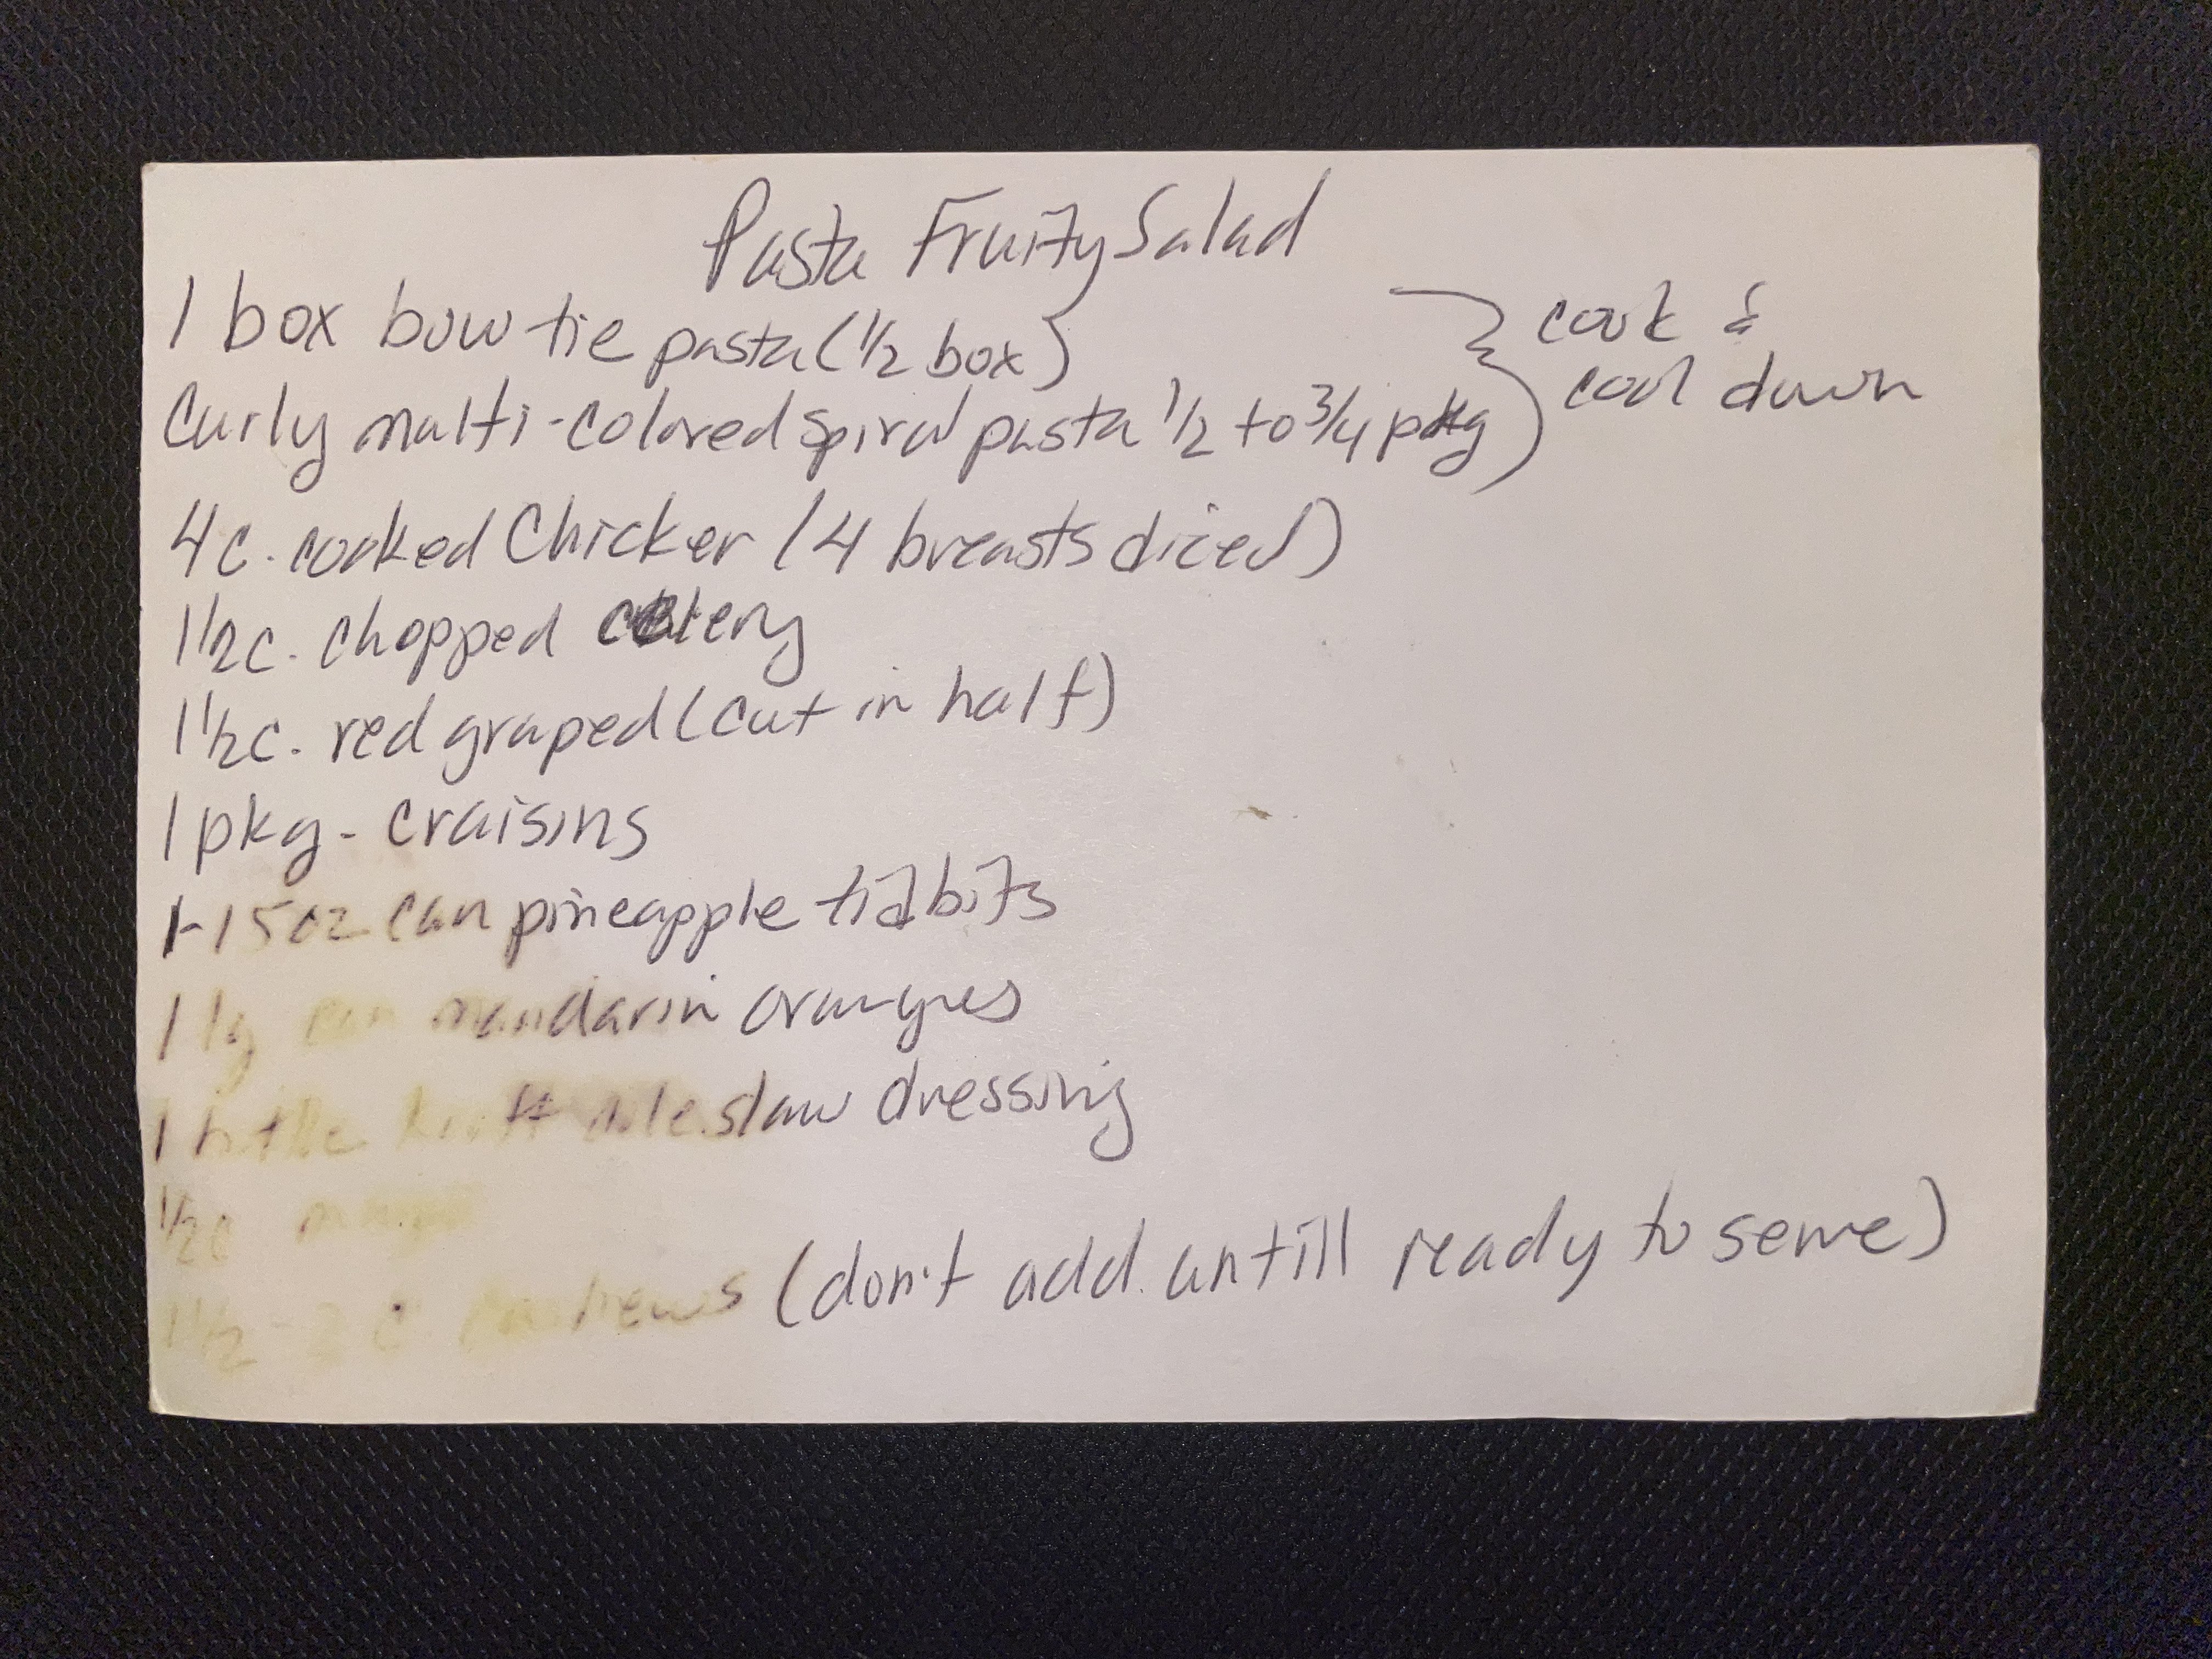 Pasta Fruity Salad
1 box bow tie pasta (1/2 box)
Curly multi-colored spiral pasta 1/2 to 3/4 pkg)
cook &
cool down
4c. cooked Chicken (4 breasts diced)
1 1/2c. chopped celery
1 1/2c. red graped (cut in half)
1 pkg - craisins
1-15oz can pineapple tidbits
1 lg can mandarin oranges
1 bottle kraft coleslaw dressing
1/2c mayo
1 1/2 - 2 c. cashews (don't add untill ready to serve)